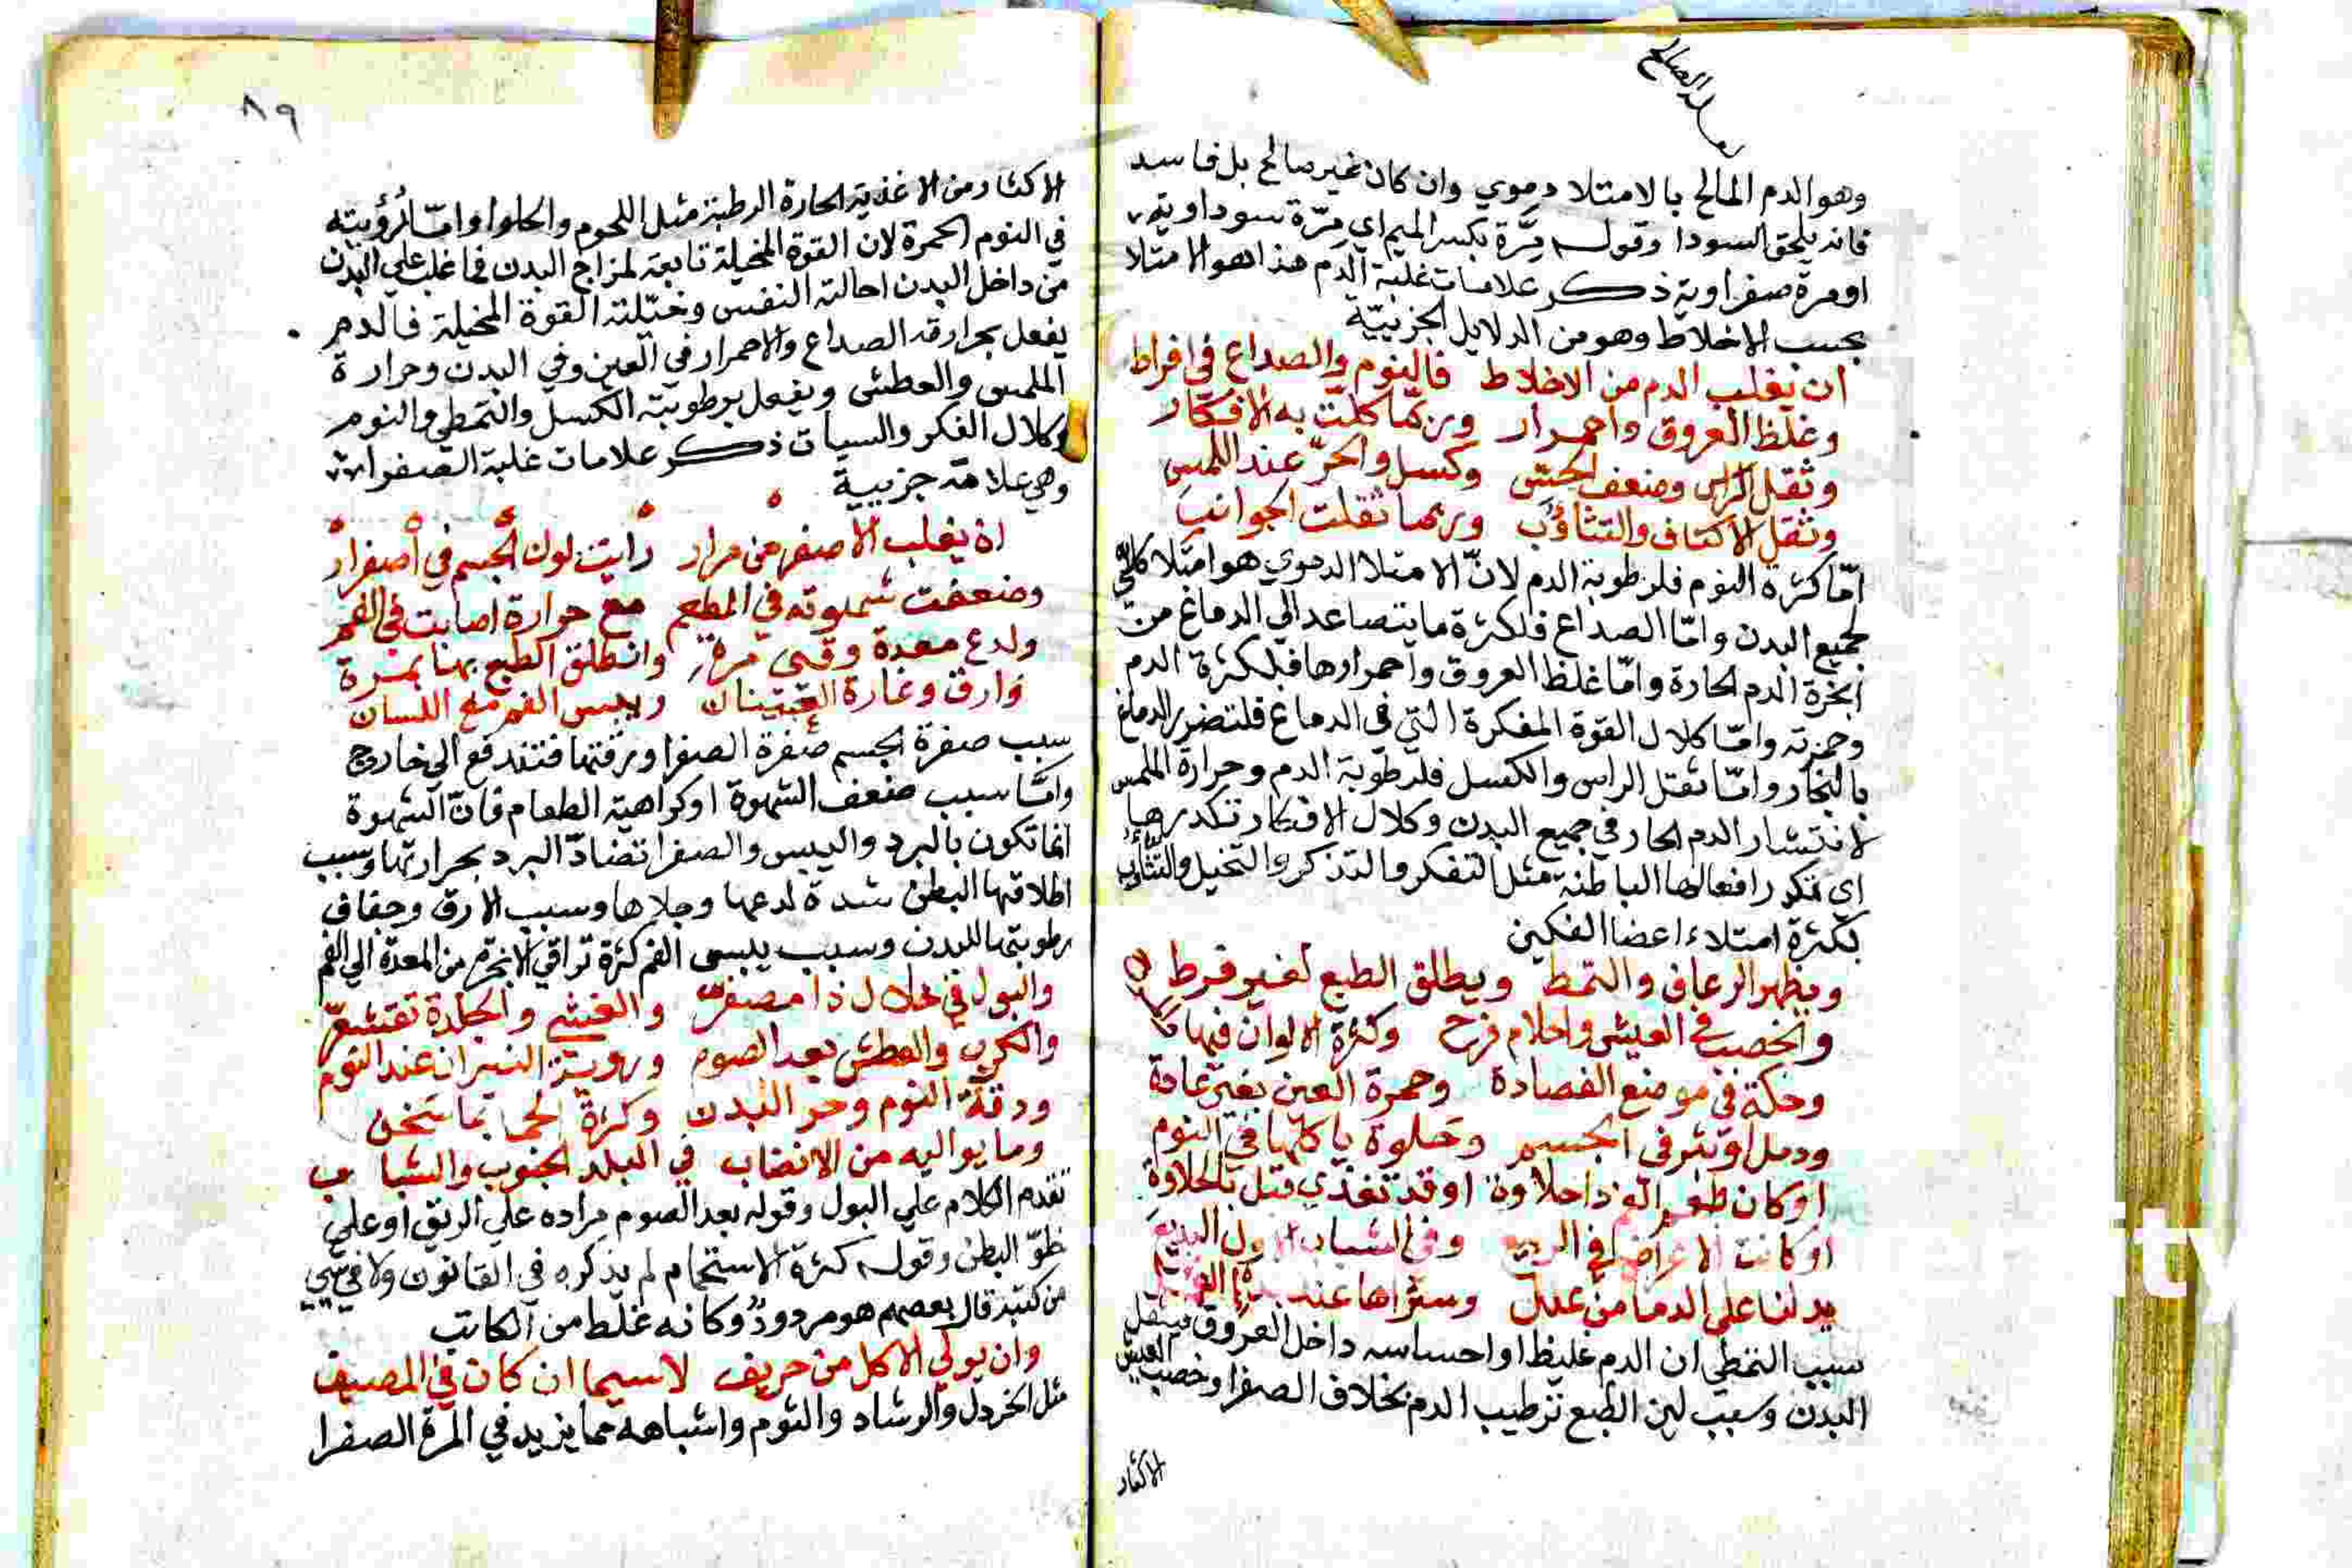 وهو الدم المالح بالامتلا دموي وان كان غير صالح بل فاسد
فانه يلحق السودا وقوله مِرَّة بكسر الميم اي مِرّة سوداوية
او مرة صفراوية ذكر علامات غلبة الدم هذا هو الامتلا
بحسب الاخلاط وهو من الدلايل الجزييّة
ان يغلب الدم من الاخلاط فالنوم والصداع في افراط
وغلظ العروق واحمرار وربما كلّت به الافكار
وثقل الراس وضعف الحسّ وكسل والحرّ عند اللمس
وثقل الاكتاف والتثاؤب وربما ثقلت الجوانب
امّا كثرة النوم فلرطوبة الدم لانّ الامتلا الدموي هو امتلا كلّي
لجميع البدن وامّا الصداع فلكثرة ما يتصاعد الي الدماغ من
ابخرة الدم الحارة وامّا غلظ العروق واحمرارها فلكثرة الدم
وحمرته وامّا كلال القوة المفكرة التي في الدماغ فلتضرر الدماغ
بالبخار وامّا ثقل الراس والكسل فلرطوبة الدم وحرارة الملمس
لانتشار الدم الحار في جميع البدن وكلال الافكار تكدرها
اي تكدر افعالها الباطنة مثل التفكر والتذكر والتخيل والتثاؤب
بكثرة امتلاء اعضا الفكين
ويظهر الرعاف والتمط ويطلق الطبع لغير فرط
والخصب في العيش واحلام فرح وكثرة الالوان فيها
وحكة في موضع الفصادة وحمرة العين بغير عادة
ودمل او بثر في الجسم وحلوة ياكلها في النوم
او كان طعم الفم ذا حلاوة او قد تغذي قبل بالحلاوة
او كانت الاعراض في الربيع وفي الشباب
يدلنا علي الدما من علل وسترا ها عند
سبب التمطي ان الدم غليظ او احساسه داخل العروق فيثقل
البدن وسبب لين الطبع ترطيب الدم بخلاف الصفرا وخصب العيش
الاكثار
٨٩
الاكثار من الاغذية الحارة الرطبة مثل اللحوم والحلوا وامّا لرؤيته
في النوم الحمرة لان القوة المخيلة تابعة لمزاج البدن فما غلب علي البدن
من داخل البدن احالته النفس وخيّلته القوة المخيلة فالدم
يفعل بحرارته الصداع والاحمرار في العين وفي البدن وحرارة
الملمس والعطش ويفعل برطوبته الكسل والتمطي والنوم
وكلال الفكر والسبات ذكر علامات غلبة الصفرا
وهي علامة جزيية
ان يغلب الاصفر من مرار رأيت لون الجسم في اصفرار
وضعفت شهوته في المطعم مع حرارة اصابت في الفم
ولدع معدة وقيئ مرة وانطلق الطبع بها بمرة
وارق وغارة العينان ويبس الفم مع اللسان
سبب صفرة الجسم صفرة الصفرا ورقتها فتندفع الي خارج
وامّا سبب ضعف الشهوة او كراهية الطعام فانّ الشهوة
انما تكون بالبرد واليبس والصفرا تضادّ البرد بحرارتها وسبب
اطلاقها البطن شدة لدعها وجلاها وسبب الارق وجفاف
رطوبتها للبدن وسبب يبس الفم كثرة تراقي الابخرة من المعدة الي الفم
والبول في خلال ذا مصفرّ والغشي والجلدة تقشعرّ
والكرب والعطش بعد الصوم ورويت النيران عند النوم
ودقة النوم وحر البدن وكثرة الحما بما سخن
وما يواليه من الانصاب في البلد الجنوب والشباب
تقدم الكلام علي البول وقوله بعد الصوم مراده علي الريق او علي
خلوّ البطن وقوله كثرة الاستحمام لم يذكره في القانون ولا في شي
من كتبه قال بعضهم هو مردودٌ وكانه غلط من الكاتب
وان يولي الاكل من حريف لاسيما ان كان في المصيف
مثل الخردل والرشاد والثوم واشباهه مما يزيد في المرة الصفرا